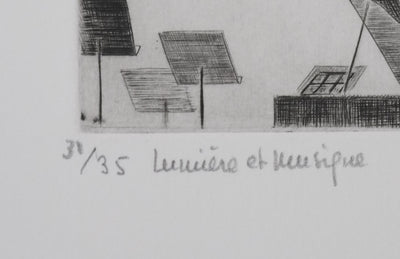 31/35 Lumière et Musique